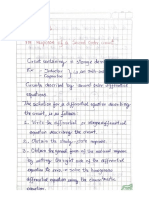 The Response of a Second Order circuit
Circuit containing a storage device
Ex: Inductor
Capacitor
Circuits described by second order differential
equations.
The solution for a differential equation describing
the circuit, is as follows:
1. Write the differential or integrodifferential
equation describing the circuit.
2. Obtain the steady-state response.
3. Obtain the general form of the natural response
by setting the right side of the differential
equation to zero & solve the homogeneous
differential equation using the characteristic
equation.